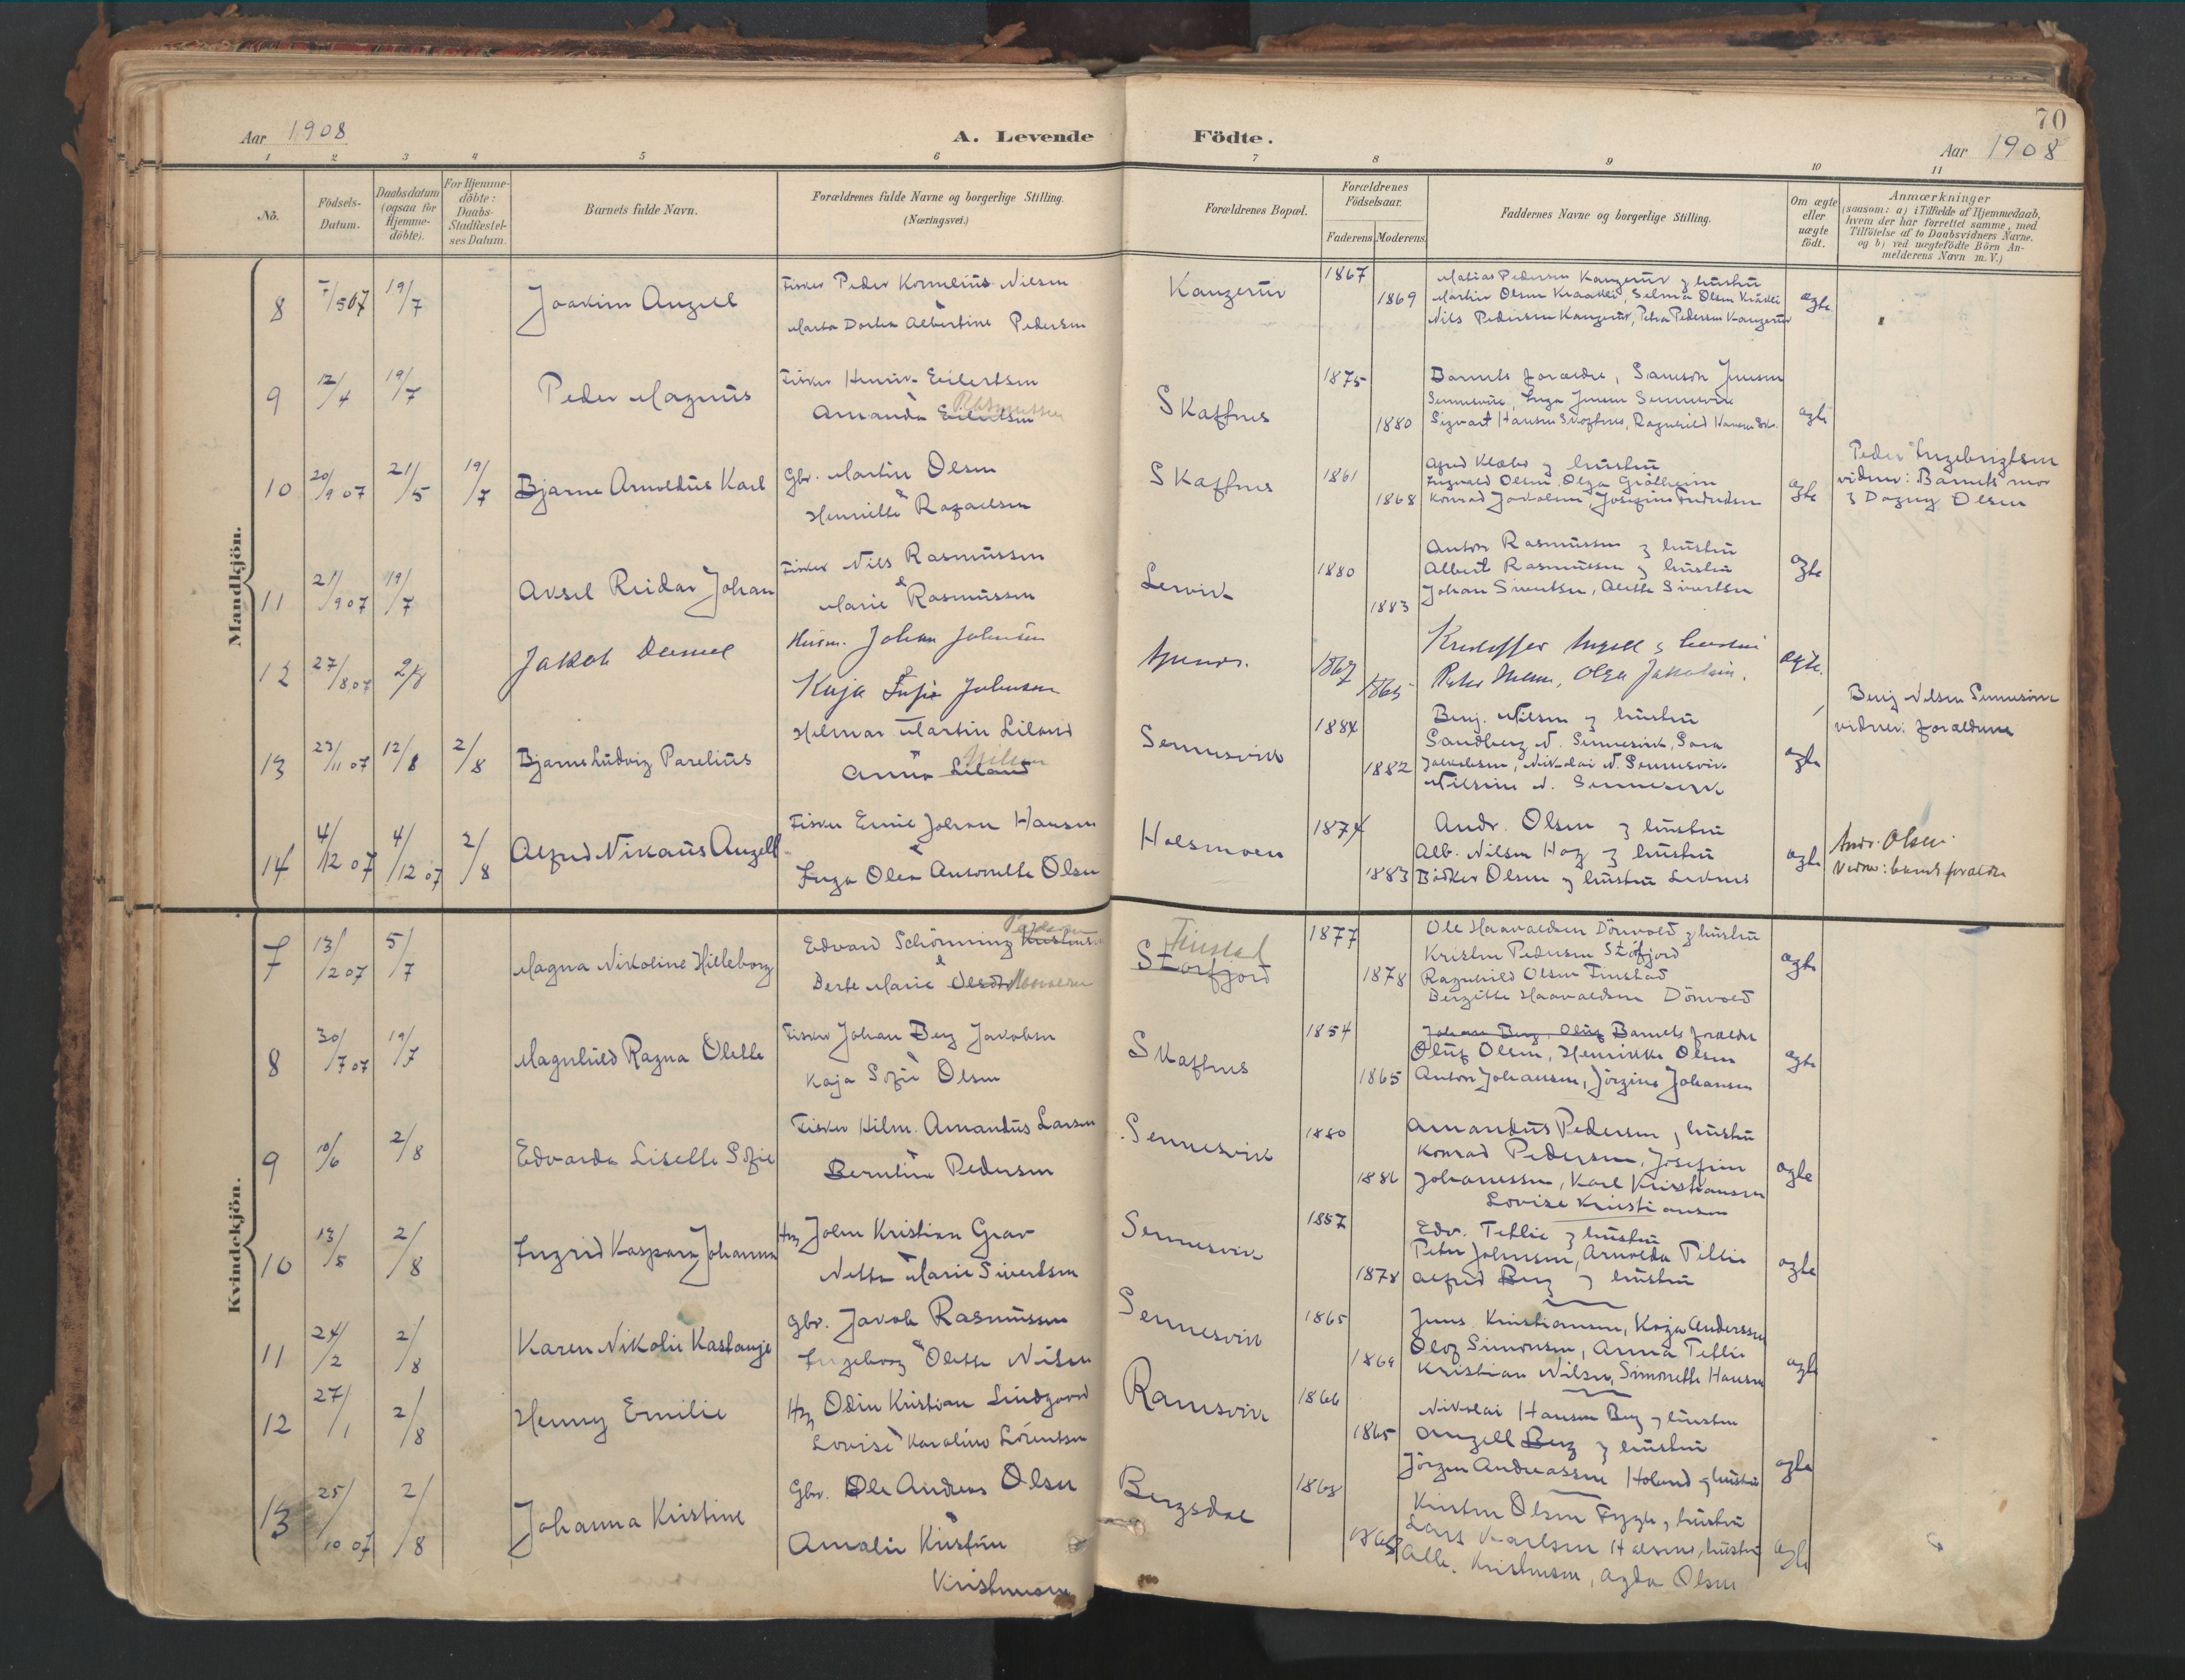 70
Aar 1908
A. Levende Födte.
Aar 1908
1 2 3 4 5 6 7 8 9 10 11
No.
Födsels-
Datum.
Daabsdatum
(ogsaa for
Hjemme-
döbte).
For Hjemme-
döbte:
Daabs-
Stadfæstel-
ses Datum.
Barnets fulde Navn.
Forældrenes fulde Navne og borgerlige Stilling.
(Næringsvei.)
Forældrenes Bopæl.
Forældrenes
Födselsaar.
Faderens Moderens
Faddernes Navne og borgerlige Stilling.
Om ægte
eller
uægte
födt.
Anmærkninger
(saasom: a) i Tilfælde af Hjemmedaab,
hvem der har forrettet samme, med
Tilföielse af to Daabsvidners Navne.
og b) ved uægtefödte Börn An-
melderens Navn m.V.)
Mandkjön.
8 7/5 07 19/7 Joakim Angell
Fisker Peder Kornelius Nilsen
&
Marta Dortea Albertine Pedersen
Kangerur 1867 1869
Matias Pedersen Kangerur & hustru
Martin Olsen Kraakli, Selma Olsen Kråkli
Nils Pedersen Kangerur, Petra Pedersen Kangerur
ægte
9 12/4 19/7 Peder Magnus
Fisker Henrik Eilertsen
Amanda Eilertsen Rasmussen
Skaftnes 1875 1880
Barnets forældre, Samson Jensen
Sennesvik, Inga Jensen Sennesvik
Sigvart Hansen Skaftnes, Ragnhild Hansen Sk.
ægte
10 20/9 07 21/5 19/7 Bjarne Arnoldus Karl
Gbr. Martin Olsen
&
Henriette Rafaelsen
Skaftnes 1861 1868
& hustru
Ingvald Olsen, Olga
Konrad Jakobsen, Josefine
ægte
Peder Ingebrigtsen
vidner: Barnets mor
& Dagny Olsen
11 21/9 07 19/7 Aksel Reidar Johan
Fisker Nils Rasmussen
&
Marie Rasmussen
Lervik 1880 1883
Anton Rasmussen & hustru
Albert Rasmussen & hustru
Johan Sivertsen, Alette Sivertsen
ægte
12 27/8 07 2/8 Jakob Daniel
Husm. Johan Johnsen
&
Kaja Sofie Johnsen
1867 1865
& hustru
Olga Jakobsen.
ægte.
13 23/11 07 12/8 2/8 Bjarne Ludvig Parelius
Helmar Martin Liland
Anna Liland Nilsen
Sennesvik 1884 1882
Benj. Nilsen & hustru
Sandberg N. Sennesvik, Sara
Jakobsen, Nikolai N. Sennesvik
N. Sennesvik
ægte
Benj Nilsen Sennesvik
vidner: forældrene
14 4/12 07 4/12 07 2/8 Alfred Nikaus Angell
Fisker Emil Johan Hansen
&
Inga Olea Antonette Olsen
Holsmoen 1874 1883
Andr. Olsen & hustru
Alb. Nilsen Hag & hustru
Bödker Olsen & hustru Leknes
ægte
Andr. Olsen
Vidner: barnets forældre
Kvindekjön.
7 13/12 07 5/7 Magna Nikoline Hilleborg
Edvard Schönning Kristensen Pedersen
&
Berte Marie Olsdtr
Storfjord Finstad 1877 1878
Ole Haavaldsen Dönvold & hustru
Kristen Pedersen Storfjord
Ragnhild Olsen Finstad
Bergitte Haavaldsen Dönvold
ægte
8 30/7 07 19/7 Magnhild Ragna Olette
Fisker Johan Berg Jakobsen
&
Kaja Sofie Olsen
Skaftnes 1854 1865
Johan Berg, Oluf Barnets forældre
Oluf Olsen, Henrikke Olsen
Anton Johansen, Jörgine Johansen
ægte
9 10/6 2/8 Edvarda Liselle Sofie
Fisker Hilm. Amandus Larsen
&
Berntine Pedersen
Sennesvik 1880 1886
Amandus Pedersen & hustru
Konrad Pedersen, Josefine
Johannessen, Karl Kristiansen
Lovise Kristiansen
ægte
10 13/5 2/8 Ingrid Kaspara Johanna
John Kristian Grav
&
Netta Marie Sivertsen
Sennesvik 1857 1878
Edv. Teflie & hustru
Peter Johnsen, Arnolda Teflie
Alfred Berg & hustru
ægte
11 24/2 2/8 Karen Nikolie Kastanje
Gbr. Jakob Rasmussen
&
Ingeborg Olette Nilsen
Sennesvik 1865 1869
Jens Kristiansen, Kaja Anderssen
Olaf Simonsen, Anna Teflie
Kristian Nilsen, Simonette Hansen
ægte
12 27/1 2/8 Henny Emilie
Odin Kristian Lindgaard
&
Lovise Karoline Lorentsen
Ramsvik 1866 1865
Nikolai Hansen Berg & hustru
Angell Berg & hustru
Jörgen Andreassen Holand & hustru
ægte
13 25/10 07 2/8 Johanna Kristine
Gbr. Ole Andreas Olsen
&
Amalie Kristine
Kristensen
Bergsdal 1868 1868
Kristen Olsen Fygle & hustru
Lars Karlsen Halsnes, hustru
Alb. Kristensen, Agda Olsen
ægte